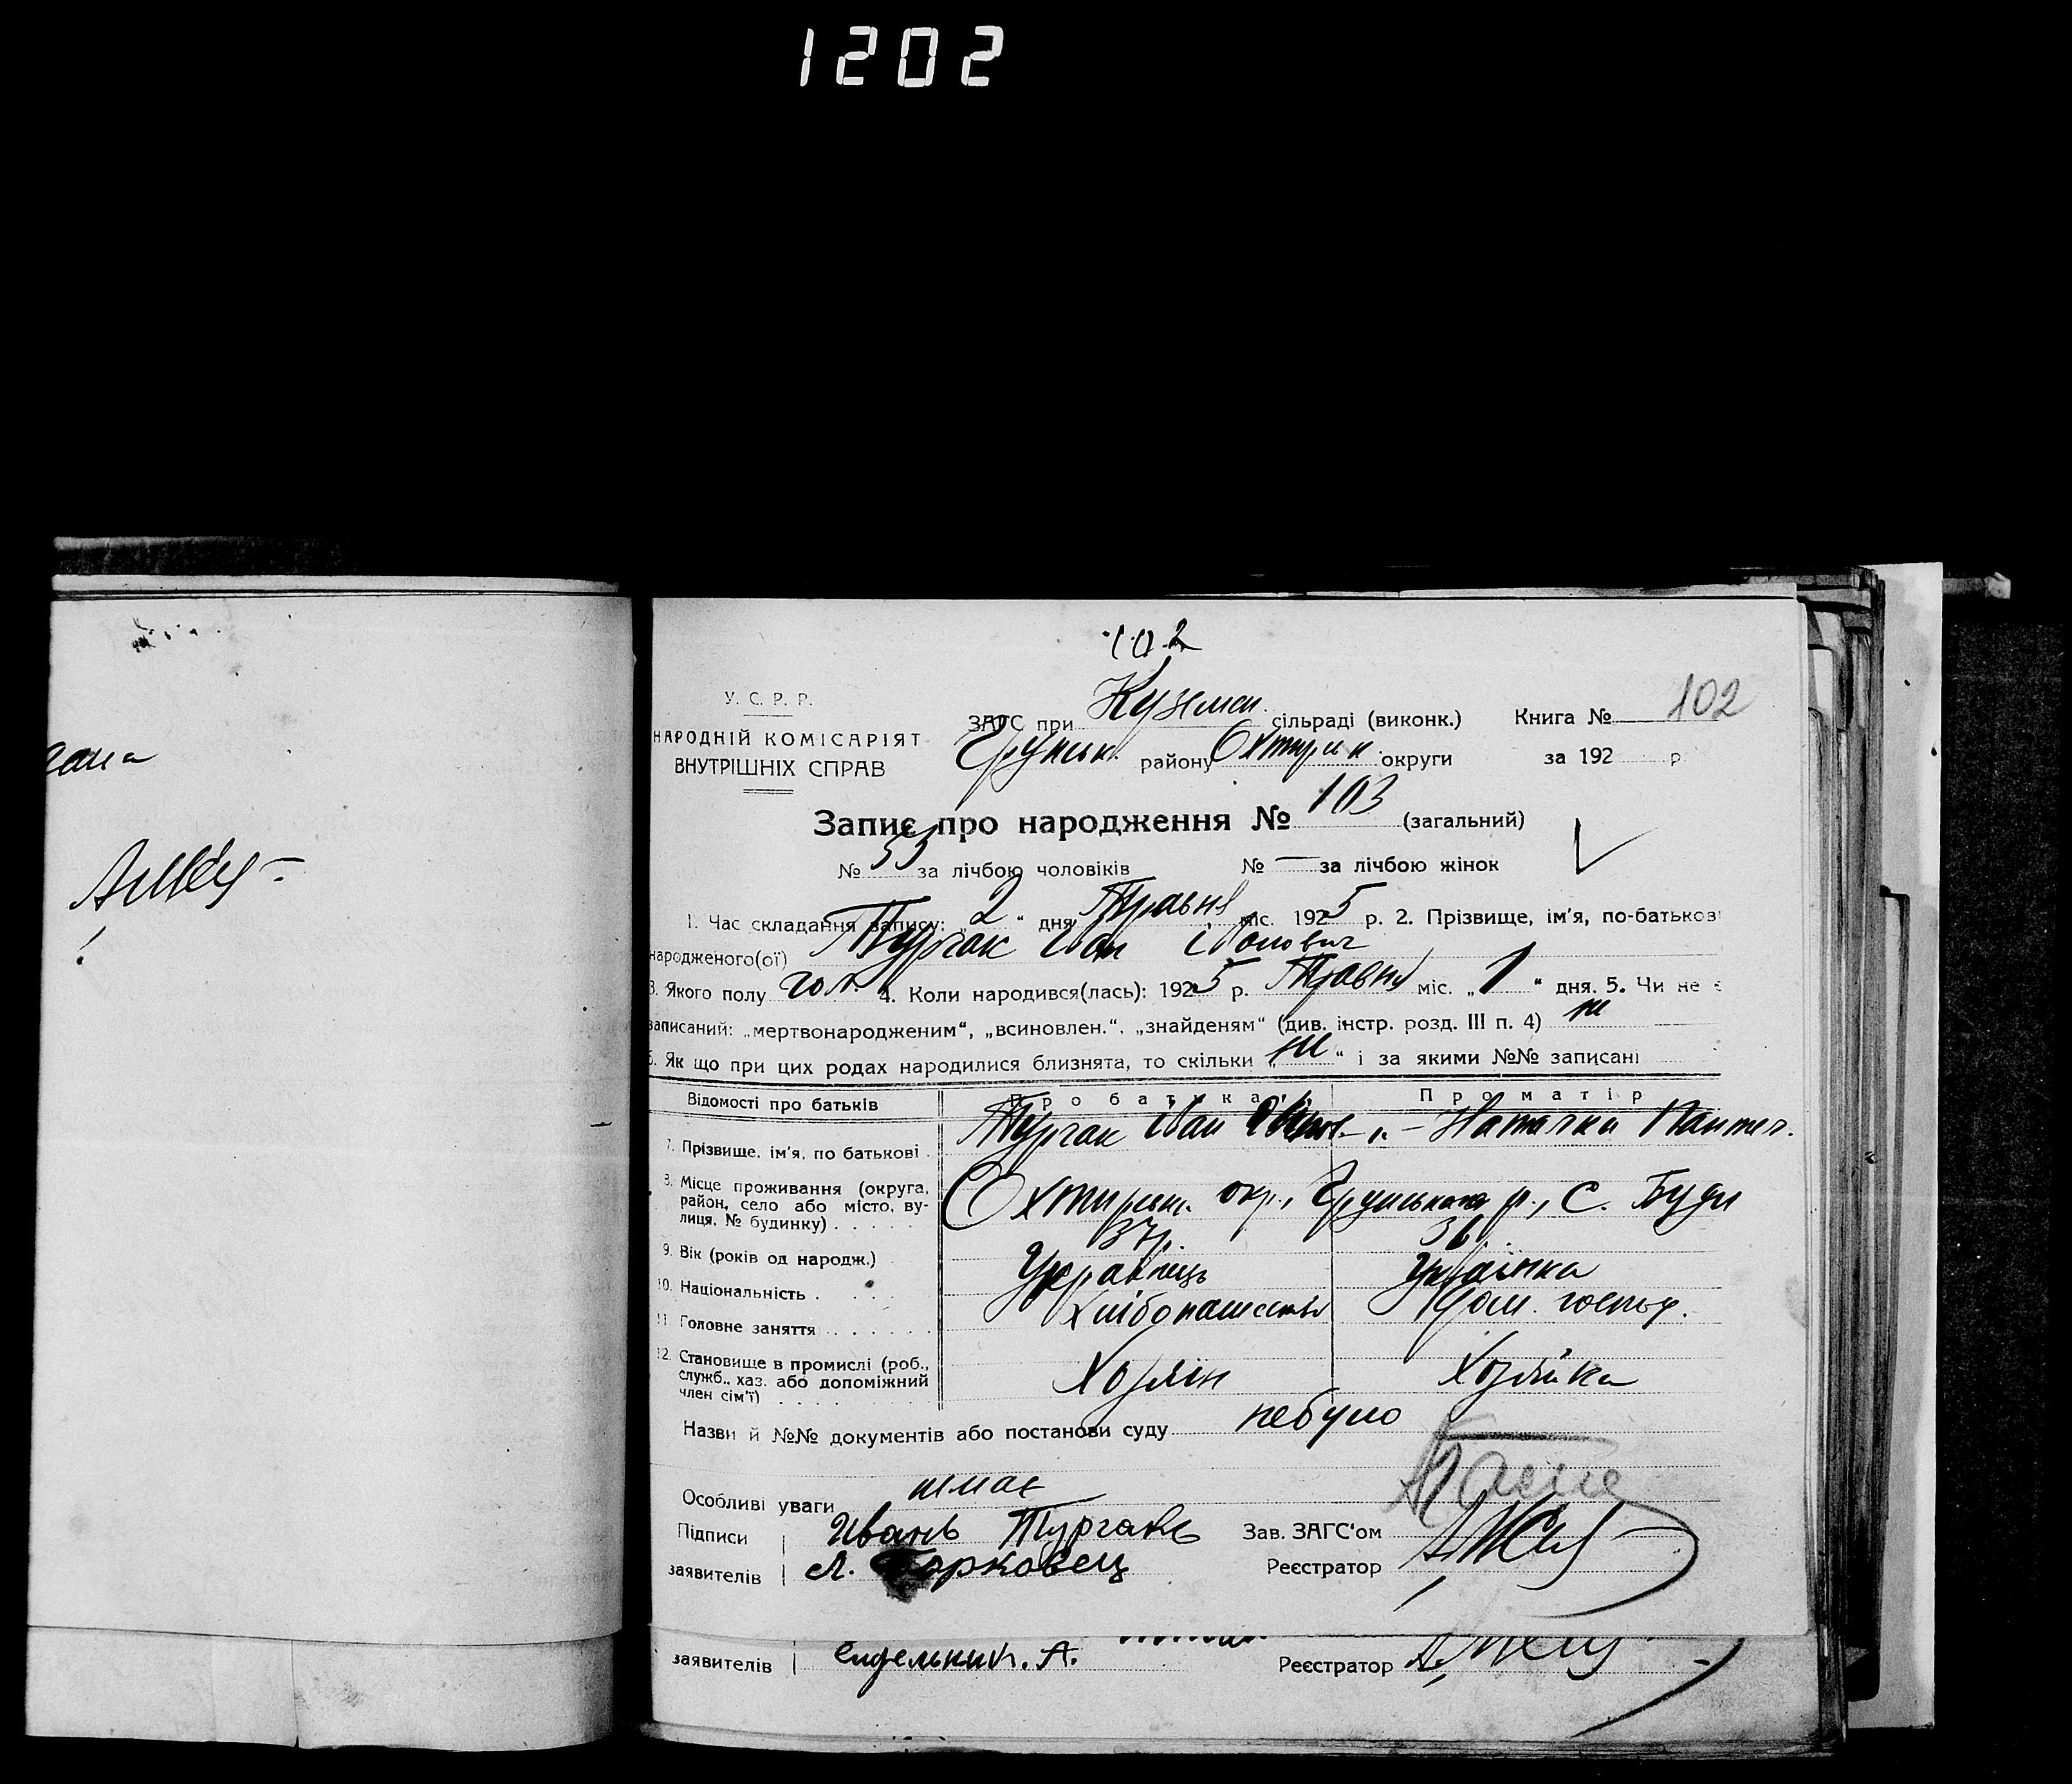 1202
102
У. С. Р. Р.
ЗАГС при Кузем. сільраді (виконк.) Книга № 102
НАРОДНІЙ КОМІСАРІЯТ
ВНУТРІШНІХ СПРАВ
Грунськ. району Охтирськ. округи за 192 р.
Запис про народження № 103 (загальний)
№ 55 за лічбою чоловіків № — за лічбою жінок
1. Час складання запису: „2“ дня Травня міс. 1925 р. 2. Прізвище, ім'я, по-батькові
народженого(ої) Тургак Іван Іванович
3. Якого полу чол. 4. Коли народився(лась): 1925 р. Травня міс. „1“ дня. 5. Чи не є
записаний: „мертвонародженим“, „всиновлен.“, „знайденям“ (див. інстр. розд. III п. 4) ні
6. Як що при цих родах народилися близнята, то скільки „ні“ і за якими №№ записані
Відомості про батьків Про батька Про матір
7. Прізвище, ім'я, по батькові Тургак Іван — „ — Наталка Пантел.
8. Місце проживання (округа, район, село або місто, вулиця, № будинку) Охтирськ. окр., Грунського р., с. Буди
9. Вік (років од народж.) 37 р. 36
10. Національність Українець Українка
11. Головне заняття Хлібопашество Дом. господ.
12. Становище в промислі (роб., служб., хаз. або допоміжний член сім'ї) Хозяін Хозяйка
Назви й №№ документів або постанови суду небуло
Особливі уваги немає
Підписи Иванъ Тургакъ Зав. ЗАГС'ом
заявителів Л. Торковец Реєстратор
заявителів А. Реєстратор